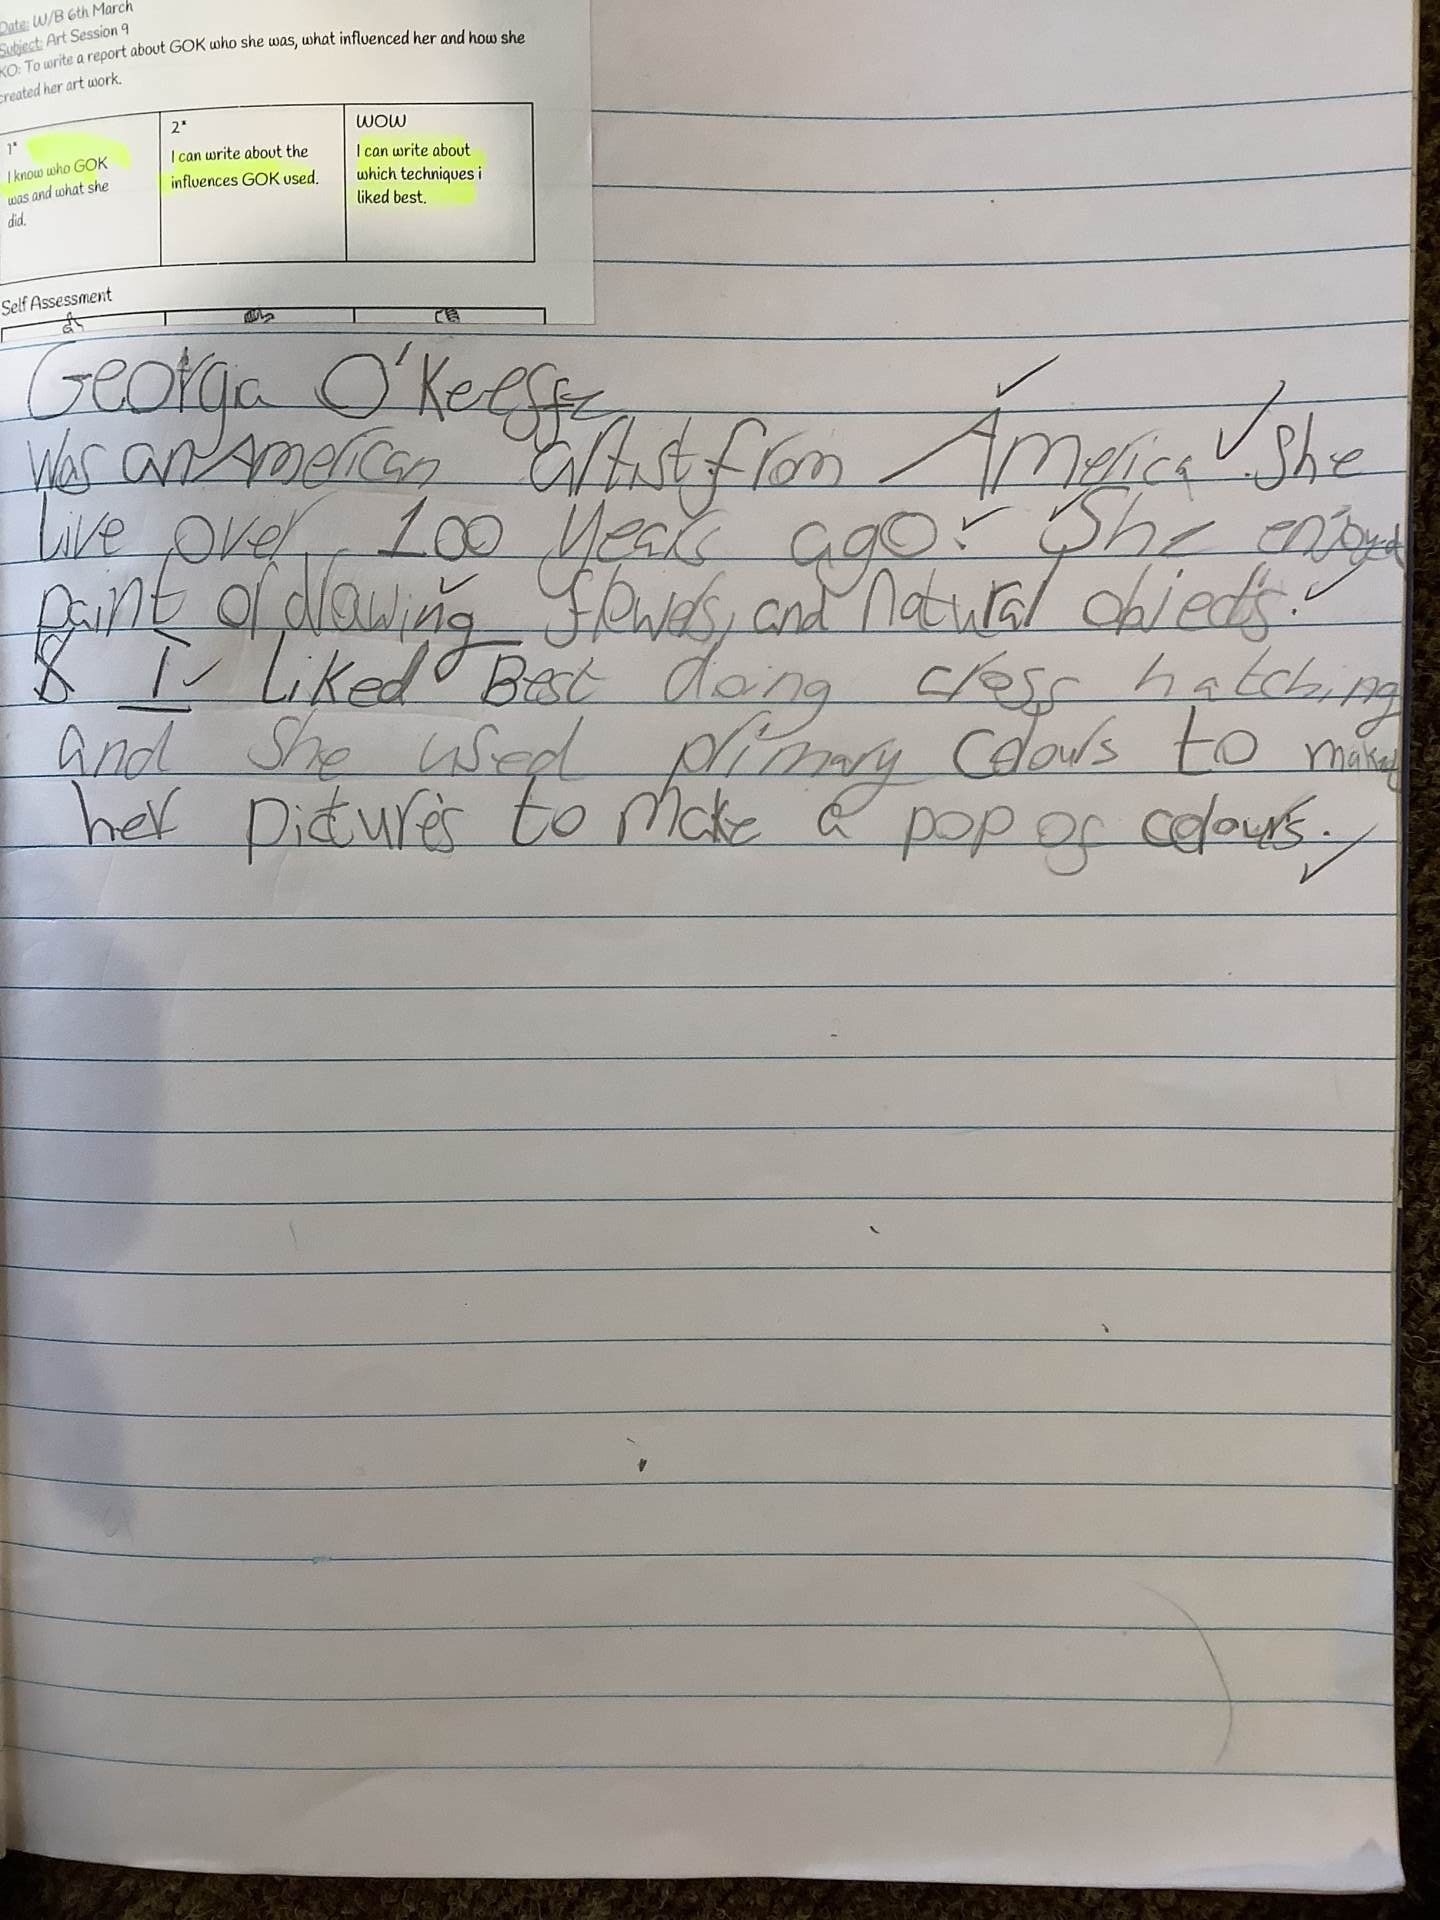 Date: W/B 6th March
Subject: Art Session 9
KO: To write a report about GOK who she was, what influenced her and how she
created her art work.
1*
I know who GOK
was and what she
did.
2*
I can write about the
influences GOK used.
WOW
I can write about
which techniques i
liked best.
Self Assessment
Georga O'Keeffe
Was an American artist from America. She
live over 100 years ago. She enjoyed
paint or drawing flowers, and natural objects.
I liked Best doing cross hatching
and she used primary colours to make
her pictures to make a pop of colours.